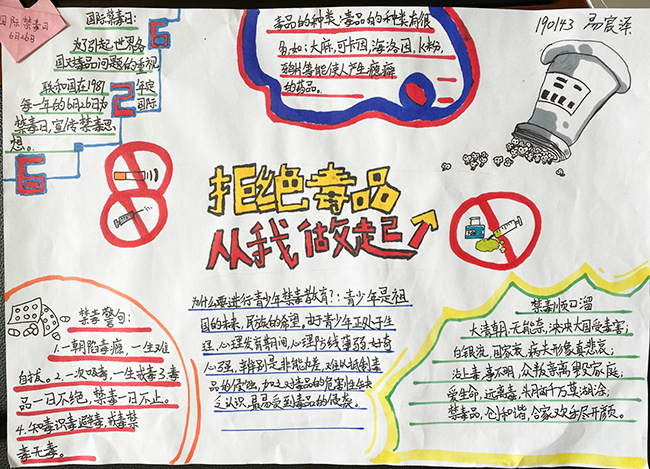 国际禁毒日
6月26日
国际禁毒日:
为了引起世界各
国对毒品问题的重视
联和国在1981年定
每一年的6月26日为国际
禁毒日,宣传禁毒思
想。
6
2
6
毒品的种类:毒品的种类有很
多如:大麻,可卡因,海洛因,k粉,
等能使人产生瘾癖
的药品。
190143 易宸泽
拒绝毒品
从我做起
禁毒警句:
1.一朝陷毒瘾,一生难
自拔。2.一次吸毒,一生戒毒3毒
品一日不绝,禁毒一日不止。
4.知毒识毒避毒,戒毒禁
毒无毒。
为什么要进行青少年禁毒教育?:青少年是祖
国的未来,民族的希望。由于青少年正处于生
理,心理发育期间,心理防线薄弱,好奇
心强,辨别是非能力差,难以抵制毒
品的侵蚀,加之对毒品的危害性缺
乏认识,易受到毒品的侵袭。
禁毒顺口溜
大清朝,无能宗,泱泱大国受毒害;
白银流,国家衰,病夫形象真悲哀;
沾上毒,事不明,众叛亲离毁家庭;
爱生命,远离毒,
禁毒品,创和谐,合家欢乐尽开颜。